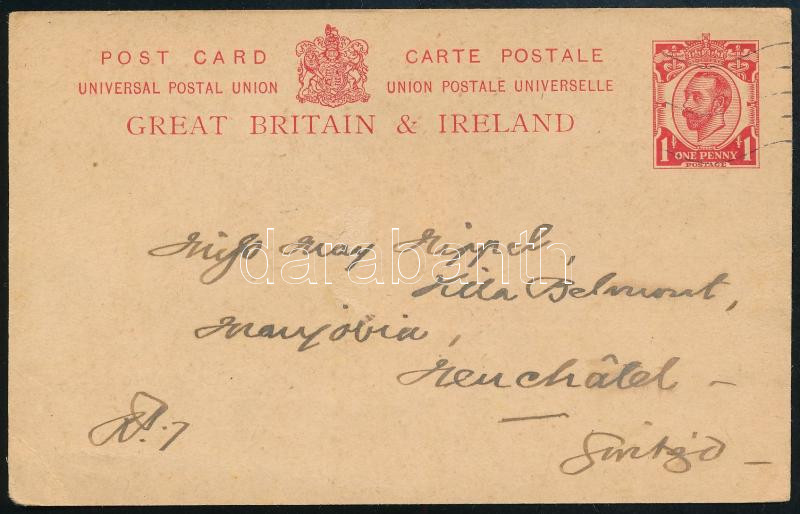 POST CARD CARTE POSTALE
UNIVERSAL POSTAL UNION UNION POSTALE UNIVERSELLE
GREAT BRITAIN & IRELAND
1 ONE PENNY 1
POSTAGE
Miss May Hippel,
darabanth
Villa Belmont,
Maujobia,
Neuchâtel —